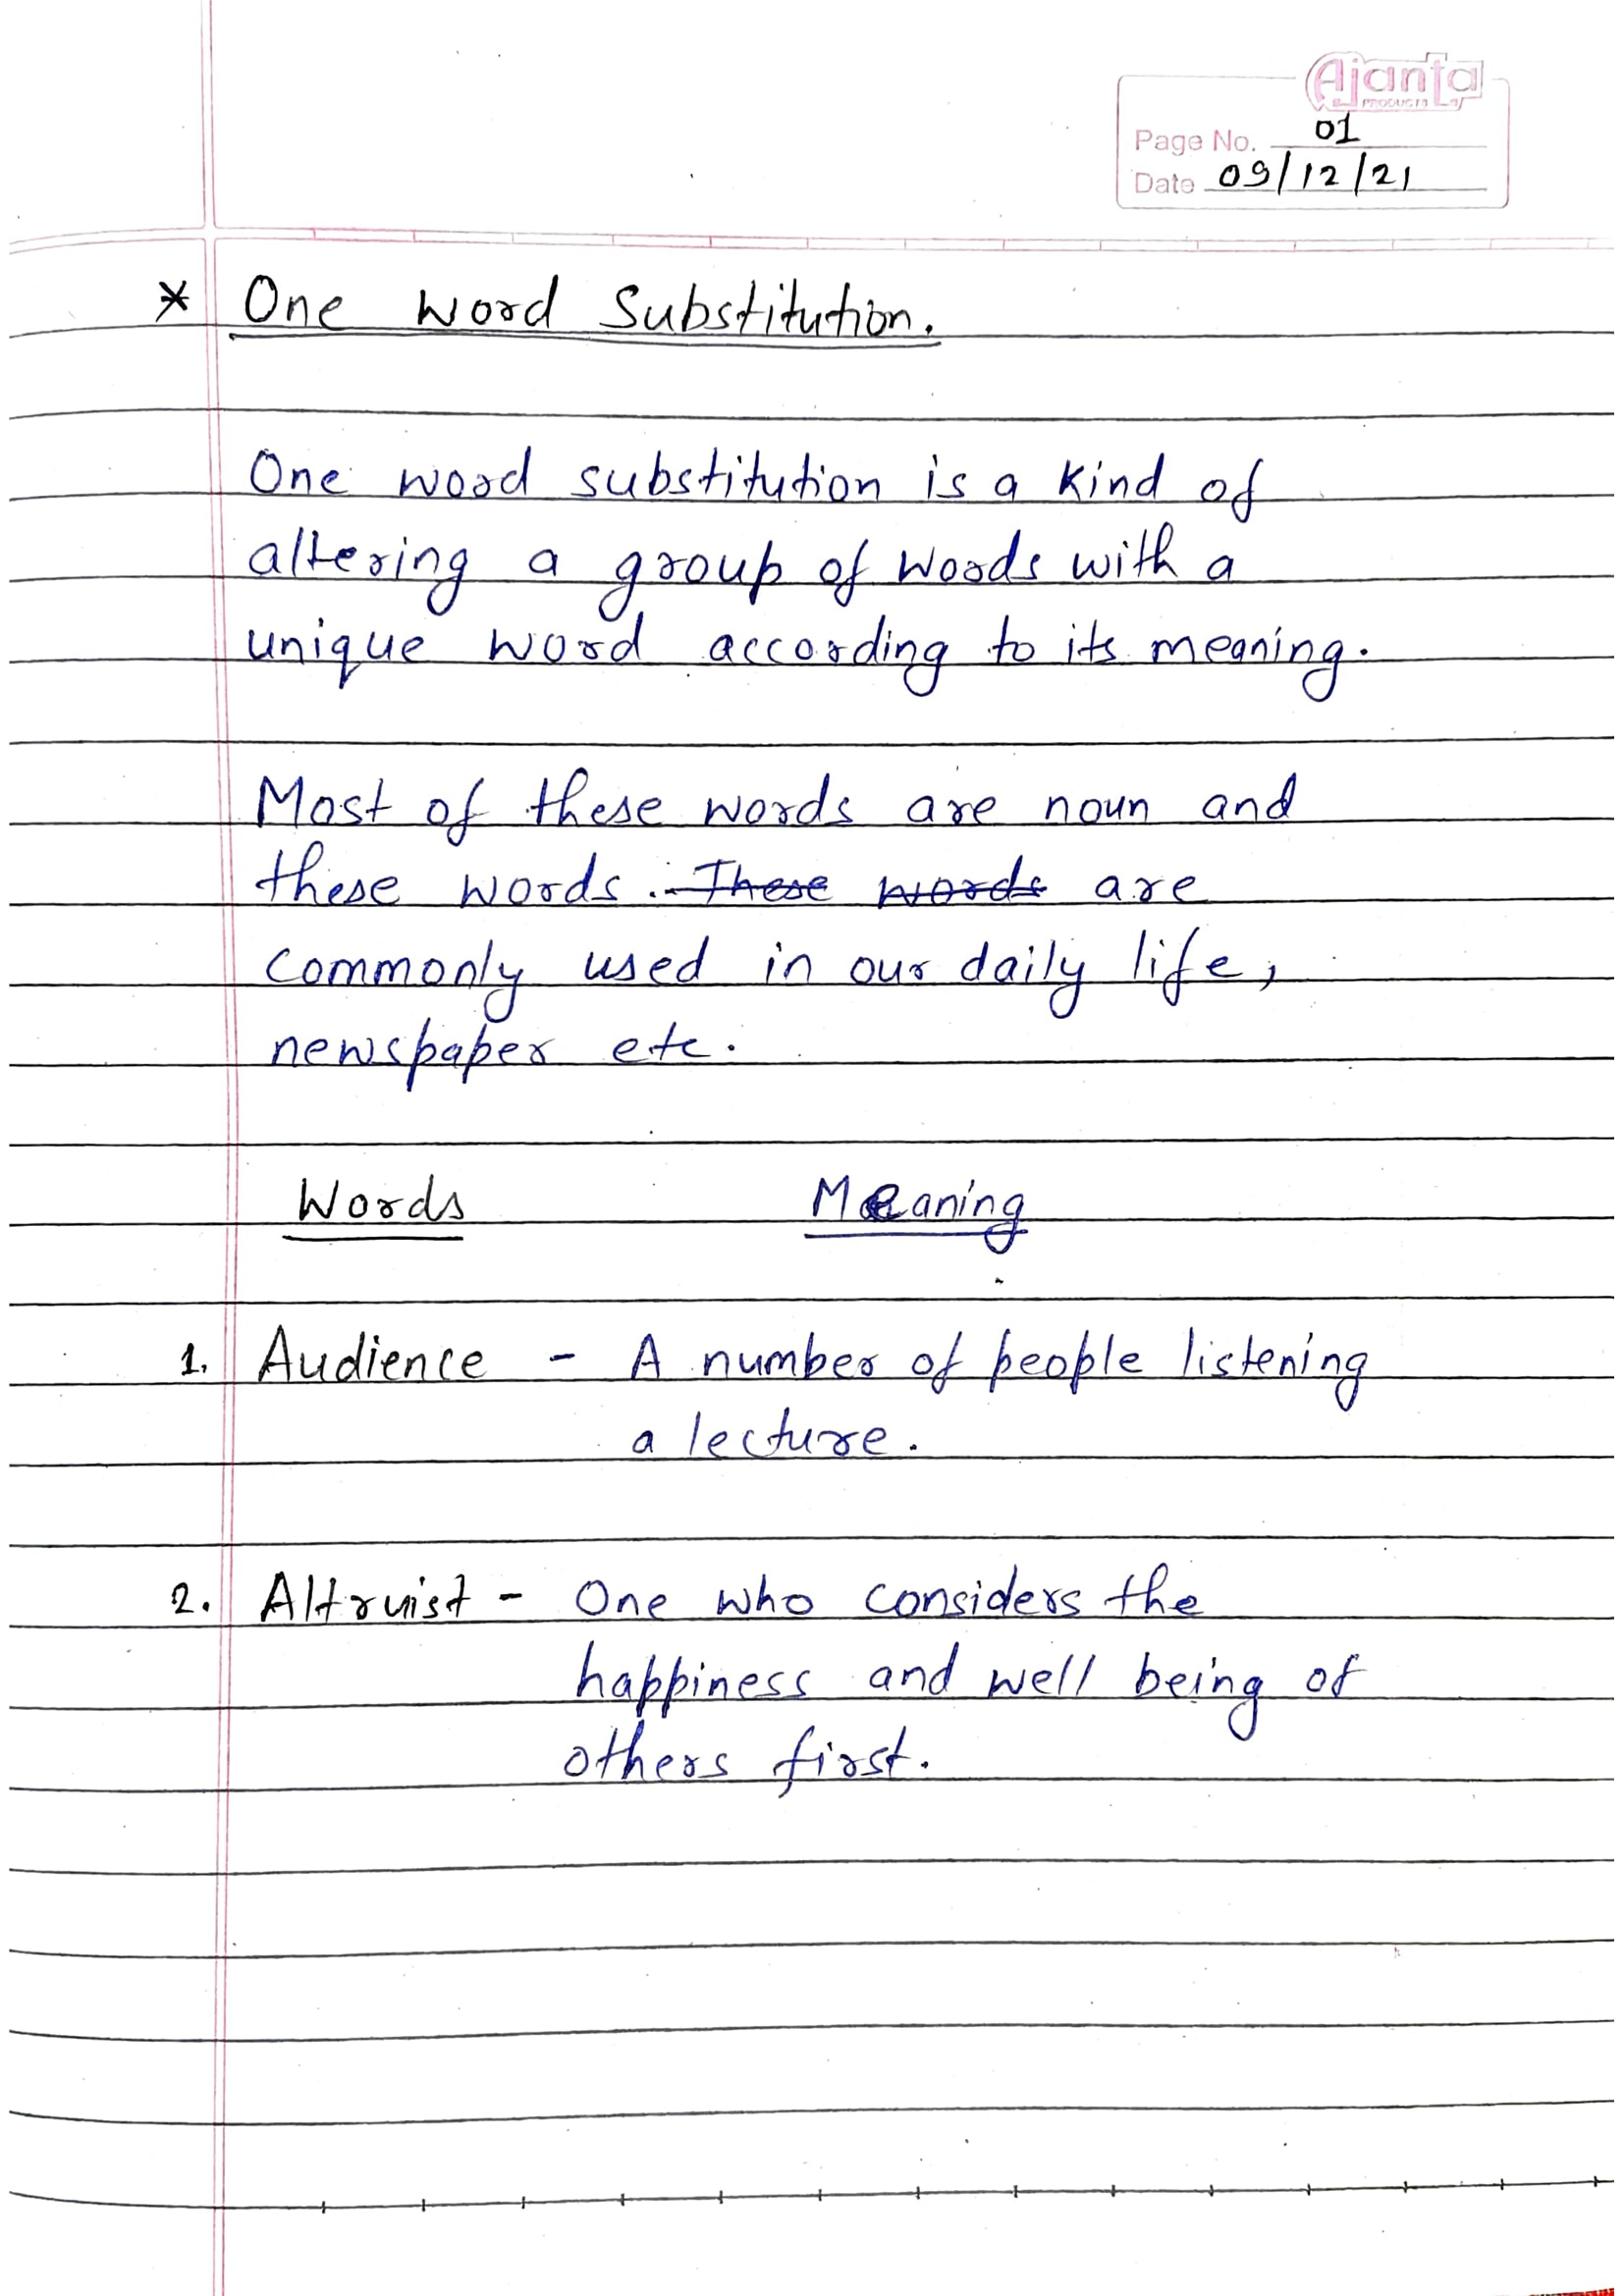 Ajanta
PRODUCTS
Page No. 01
Date 09/12/21
* One Word Substitution.
One word substitution is a kind of
altering a group of words with a
unique word according to its meaning.
Most of these words are noun and
these words. These words are
commonly used in our daily life,
newspaper etc.
Words Meaning
1. Audience - A number of people listening
a lecture.
2. Altruist - One who considers the
happiness and well being of
others first.